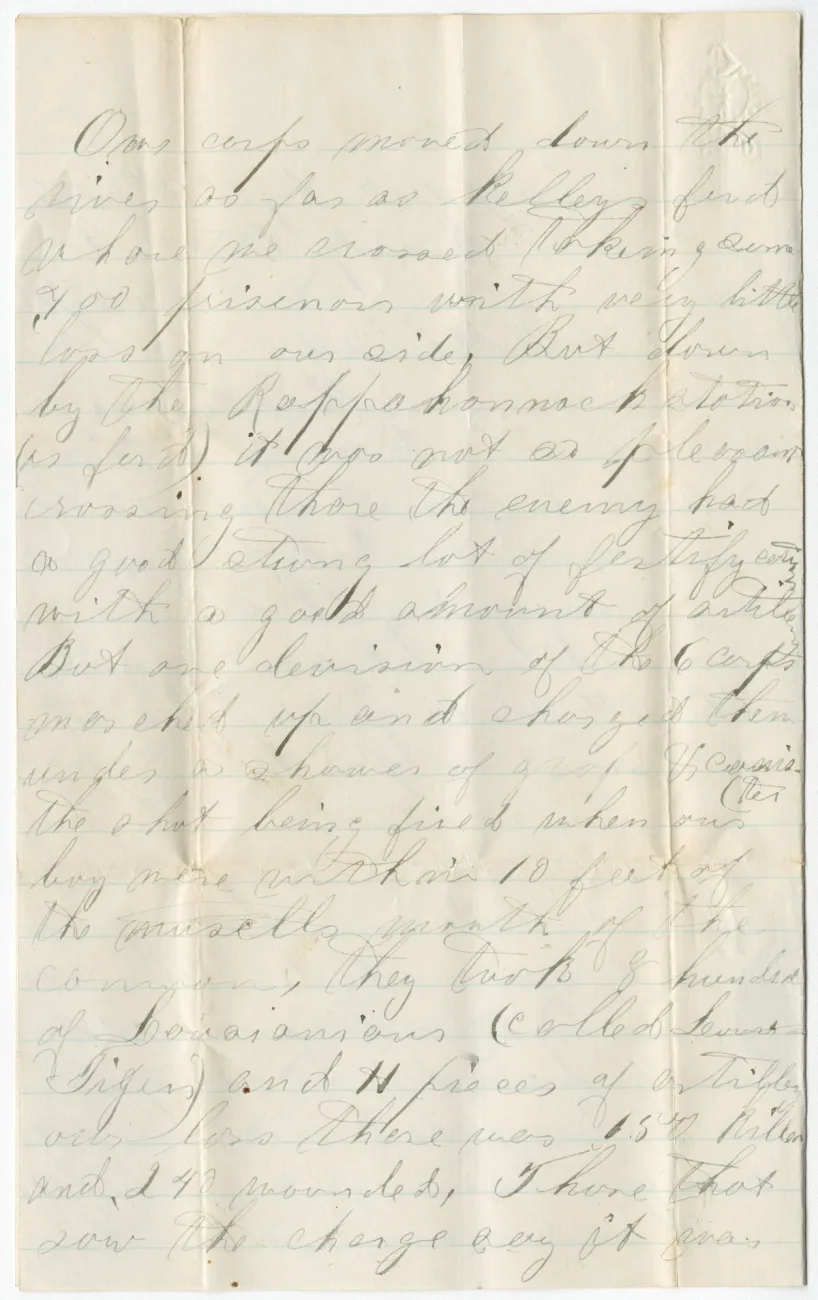 Our corps moved down the
river as far as Kelleys ford
whare we crossed taking some
400 prisenors with very little
loss on our side, But down
by the Rappahonnock station
(or ford) it was not so pleasant
crossing thare the enemy had
a good strong lot of
with a good amount of
But one devision of the 6 corps
marched up and charged them
under a shower of grap & canis-
(ter
the shot being fired when our
boy were within 10 feet of
the musells mouth of the
cannon, they took 8 hundred
of Louisianious (called Louis-
Tigers) and 4 pieces of
our loss there was 150 killed
and 240 wounded, Those that
saw the charge say it was